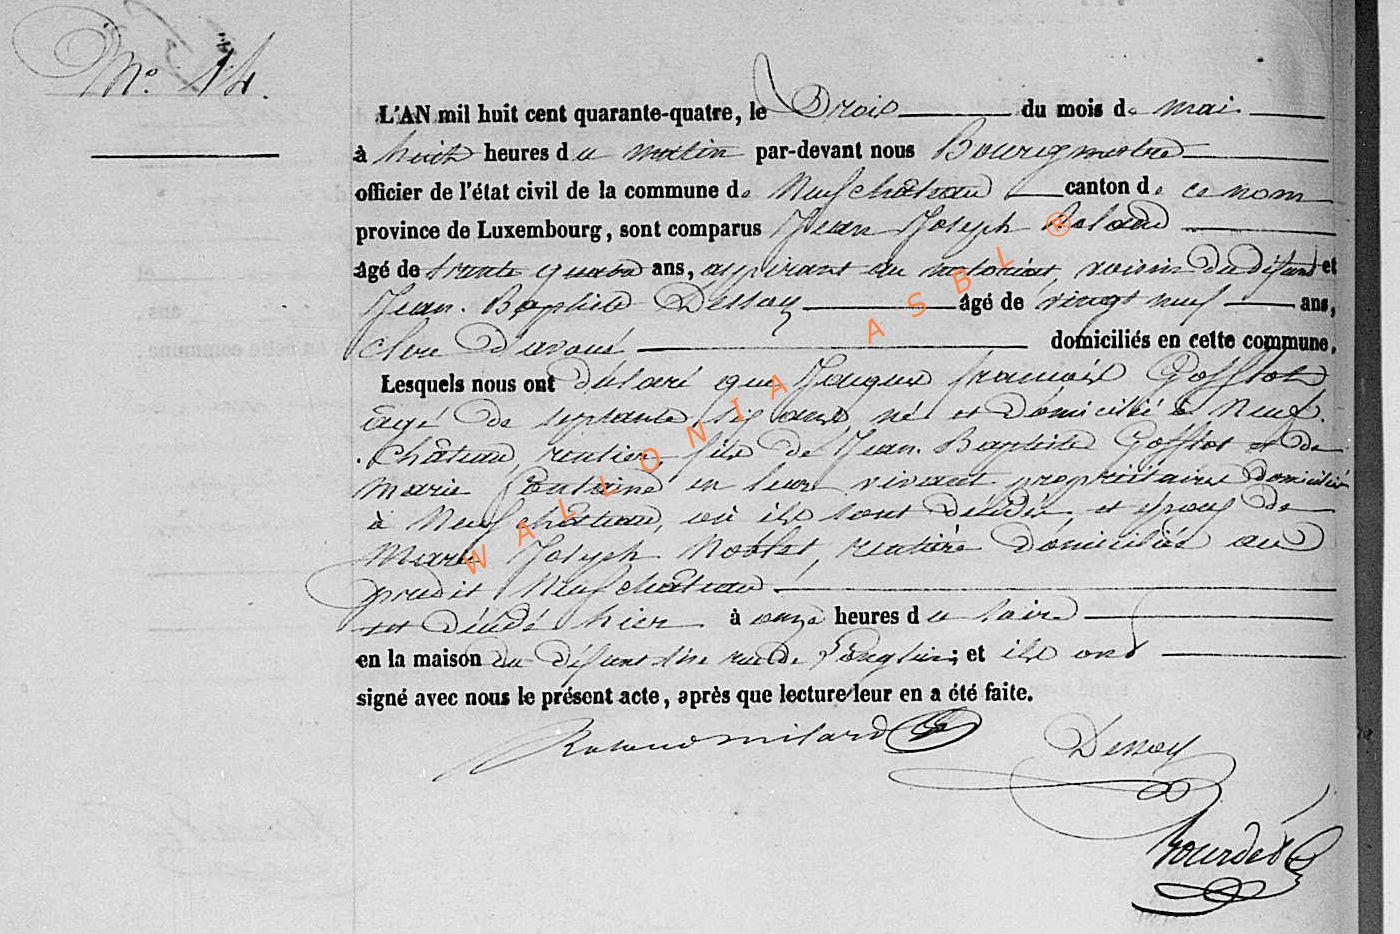 N.° 14.
L'AN mil huit cent quarante-quatre, le Trois du mois de mai
à huit heures du matin par-devant nous Bourgmestre
officier de l'état civil de la commune de Neufchâteau canton de ce nom
province de Luxembourg, sont comparus Jean Joseph Roland
âgé de trente quatre ans, aspirant au notariat, voisin du défunt et
Jean-Baptiste Dessoy âgé de vingt neuf ans,
clerc d'avoué domiciliés en cette commune,
Lesquels nous ont déclaré que Jacques françois Gofflot
âgé de septante six ans né et domicilié à Neuf-
château, rentier, fils de Jean-Baptiste Gofflot et de
Marie en leur vivant propriétaires domiciliés
à Neufchâteau, où ils sont décédés et époux de
Marie Joseph Noblet, rentière domiciliée au
prédit Neufchâteau
est décédé hier à onze heures du soir
en la maison du défunt rue de Longlier; et ils ont
signé avec nous le présent acte, après que lecture leur en a été faite.
Roland milard
Dessoy
Bourdet
WALLONIA ASBL ®